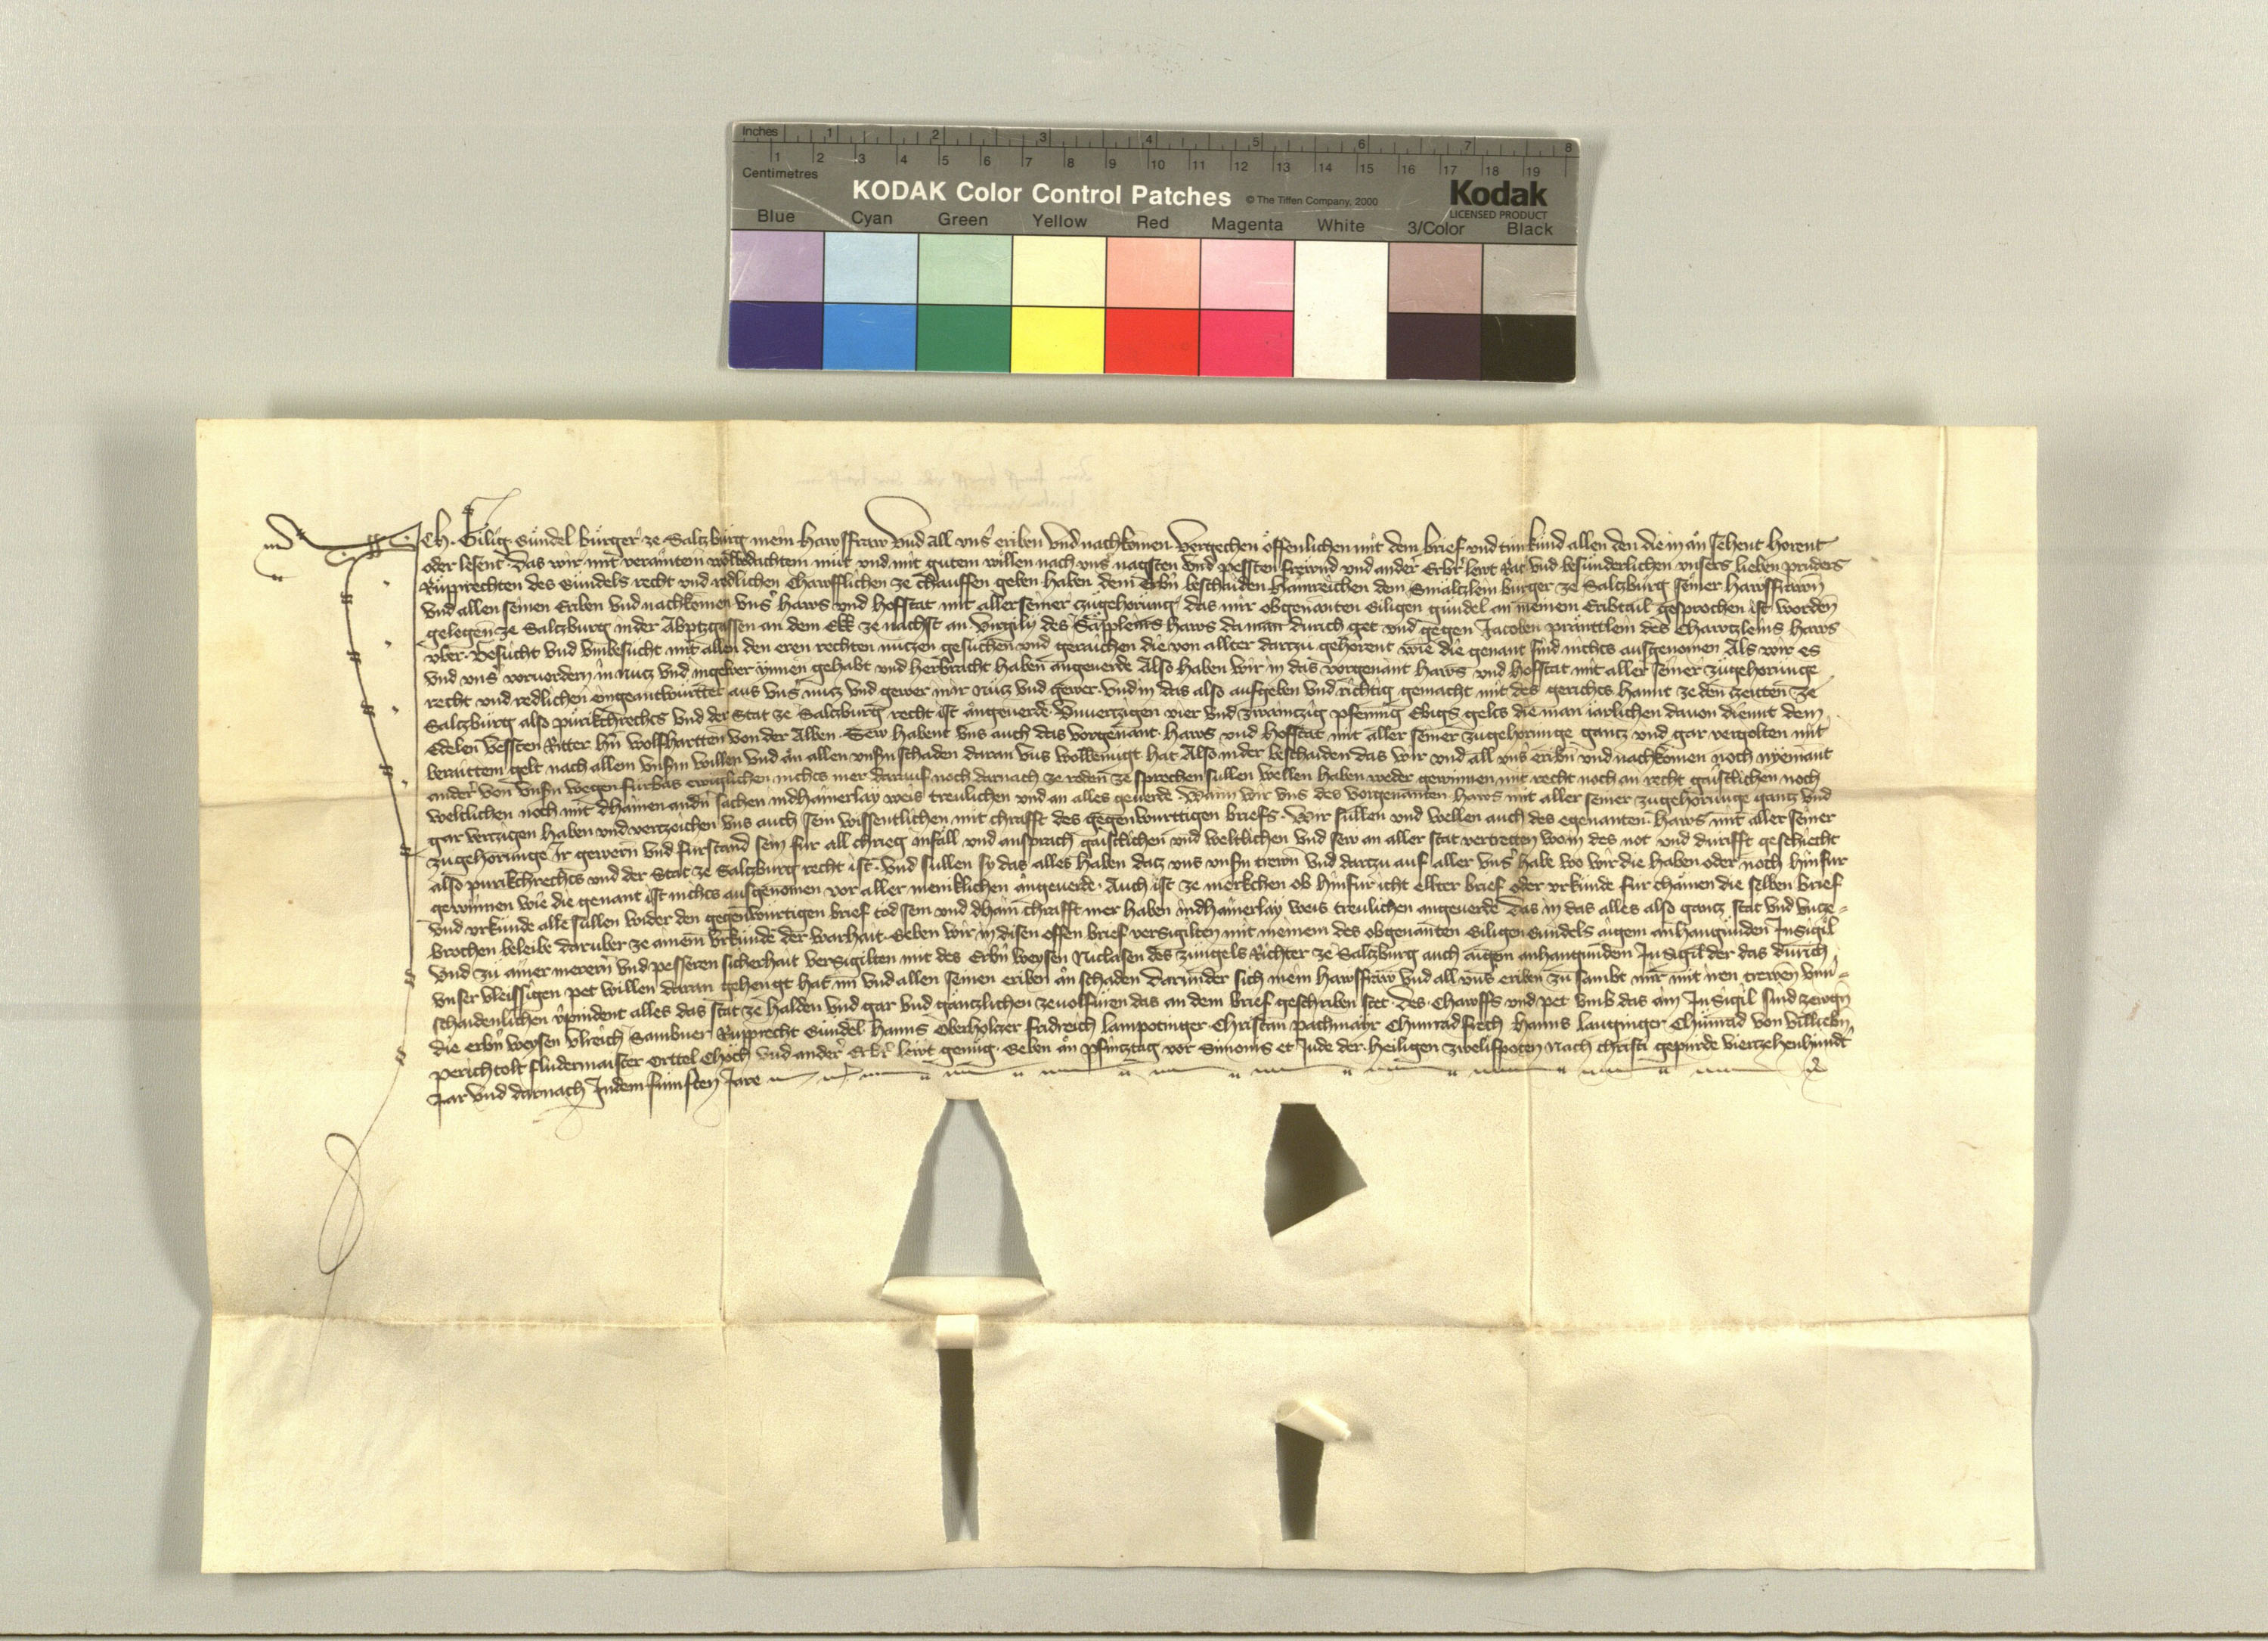 Inches 1 2 3 4 5 6 7 8
Centimetres 1 2 3 4 5 6 7 8 9 10 11 12 13 14 15 16 17 18 19
KODAK Color Control Patches © The Tiffen Company, 2000 Kodak
LICENSED PRODUCT
Blue Cyan Green Yellow Red Magenta White 3/Color Black
Ich Gilig Gündel burger ze Salczburg mein hawsfraw vnd all vns erben vnd nachkomen vergechen offenlichen mit dem brief vnd tun kund allen den die in an sehent horent
oder lesent Das wir mit veraintem wolbedachtem mut vnd mit gutem willen nach vns nagsten vnd pessten freiwnd vnd ander Erbr lewt Rat vnd besunderlichen vnsers lieben pruders
Rupprechten des Gündels recht vnd redlichen chawfflichen ze chauffen geben haben dem Erbn beschaiden Hainreichen dem Smälczlein burger ze Salczburg seiner hawsfrawn
vnd allen seinen Erben vnd nachkomen vns haws vnd hofstat mit aller seiner zugehorung das mir obgenanten Giligen gündel an meinem Erbtail gesprochen ist worden
gelegen ze Salczburg in der Abptzgassen an dem Ekk ze nachst an virgily des Säpleins haws da man durch get vnd gegen Jacoben pränttlein des Chawtzleins haws
vber besucht vnd vnbesucht mit allen den eren rechten nutzen gesuchen vnd geräuchen die von allter dartzu gehorent wie die genant sind nichts ausgenomen Als wir es
vnd vns voruordern in nutz vnd in gewer ynnen gehabt vnd herbracht haben angeuerde Also haben wir in das vorgenant haws vnd hofstat mit aller seiner zugehorunge
recht vnd redlichen eingeantwurttet aus vns nutz vnd gewer in ir nutz vnd gewer vnd in das also aufgeben vnd richtig gemacht mit des gerichts hannt ze den tzeitten ze
Salczburg also purkchrechts vnd der Stat ze Salczburg recht ist angeuerde vnuertzigen vier vnd zwaintzig pfennig Ebigs gelts die man iarlichen dauon diennt dem
Edelen vessten Ritter hern wolfhartten von der Alben Sew habent vns auch das vorgenant haws vnd hofstat mit aller seiner zugehorunge gantz vnd gar vergolten mit
beraittem gelt nach allem vnsm willen vnd an allen vnsn schaden daran vns wolbenügt hat Also in der beschaiden das wir vnd all vns erben vnd nachkomen noch nyemant
ander von vnsn wegen furbas ewigklichen nichts mer darauf noch darnach ze reden ze sprechen sullen wellen haben weder gewinnen mit recht noch an recht gaistlichen noch
weltlichen noch mit dhainen andn sachen in dhainerlay weis treulichen vnd an alles geuerde wann wir vns des vorgenanten haws mit aller seiner zugehorunge gantz vnd
gar vertzigen haben vnd vertzeichen vns auch sein wissentlichen mit chrafft des gegenwurttigen briefs wir sullen vnd wellen auch des egenanten haws mit aller seiner
zugehorunge Ir gewern vnd furstand sein fur all chrieg infall vnd ansprach gaistlichen vnd weltlichen vnd sew an aller stat vertretten wo in des not vnd durfft geschiecht
also purkchrechts vnd der Stat ze Salczburg recht ist vnd sullen sy das alles haben datz vns vnsn trewn vnd dartzu auf aller vns habe wo wir die haben oder noch hinfur
gewinnen wie die genant ist nichts ausgenomen vor aller meniklichen angeuerde Auch ist ze merkchen ob hinfur icht ellter brief oder vrkunde fur chämen die selben brief
vnd vrkunde alle sullen wider den gegenwurtigen brief tod sein vnd dhain chrafft mer haben in dhainerlay weis treulichen angeuerde Das in das alles also gantz stat vnd vnze-
brochen beleibe daruber ze ainem vrkunde der warhait Geben wir in disen offen brief versigilten mit meinem des obgenanten Giligen Gündels aigem anhangunden Insigil
vnd zu ainer merern vnd pesseren sicherhait versigilten mit des Erbn weysen Niclasen des züngels Richter ze Salczburg auch aigen anhangundem Insigil der das durich
vnser vleissigen pet willen daran gehengt hat im vnd allen seinen erben an schaden Darunder sich mein hawsfraw vnd all vns erben zu sambt mir mit iren trewen vnu-
schaidenlichen verpindent alles das stat ze halden vnd gar vnd gäntzlichen ze uolfüren das an dem brief geschriben stet Des Chawffs vnd pet vmb das ain Insigil sind zewgn
die erbn weysen vlreich Sambner Rupprecht Gündel Hanns Oberholczer Fridreich Lampotinger Christan pachmayr Chunrad Frech Hanns Lautzinger Chunrad von villiebn
perichtolt fludermaister Orttel Choch vnd ander Erbr lewt genug Geben an pfintztag vor Simonis et Jude der heiligen zwelifpoten Nach christi gepurde viertzehenhundt
Jar vnd darnach In dem fumften Jare